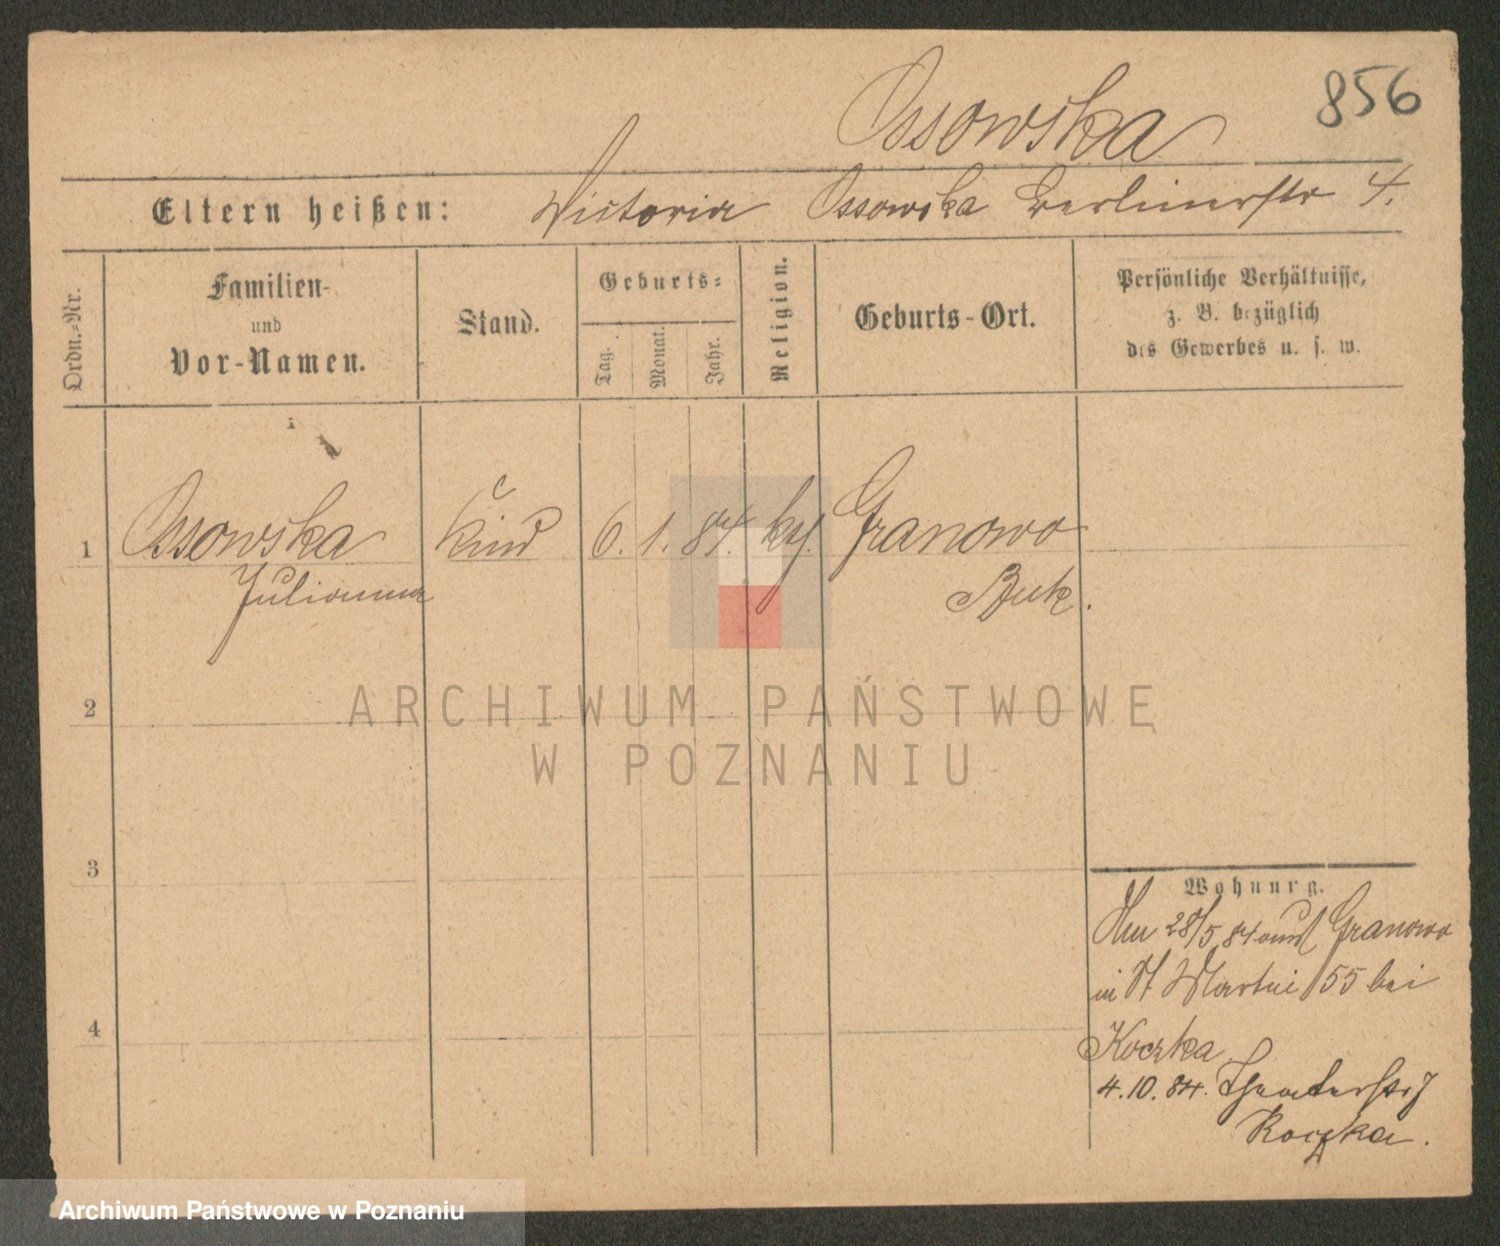 856
Ossowska
Eltern heißen: Victoria Ossowska Berlinerstr 4.
Ordn.-Nr.
Familien- und Vor-Namen.
Stand.
Geburts-
Tag. Monat. Jahr.
Religion.
Geburts-Ort.
Persönliche Verhältnisse,
z. B. bezüglich
des Gewerbes u. s. w.
1 Ossowska Kind 6. 1. 84. kt. Granowo
Julianna Buk.
2
ARCHIWUM PAŃSTWOWE
W POZNANIU
3
Wohnung.
28/5 84 Granowo
in St Martin 55 bei
4
Koczka
4.10.84. Theaterstr 7
Koczka.
Archiwum Państwowe w Poznaniu